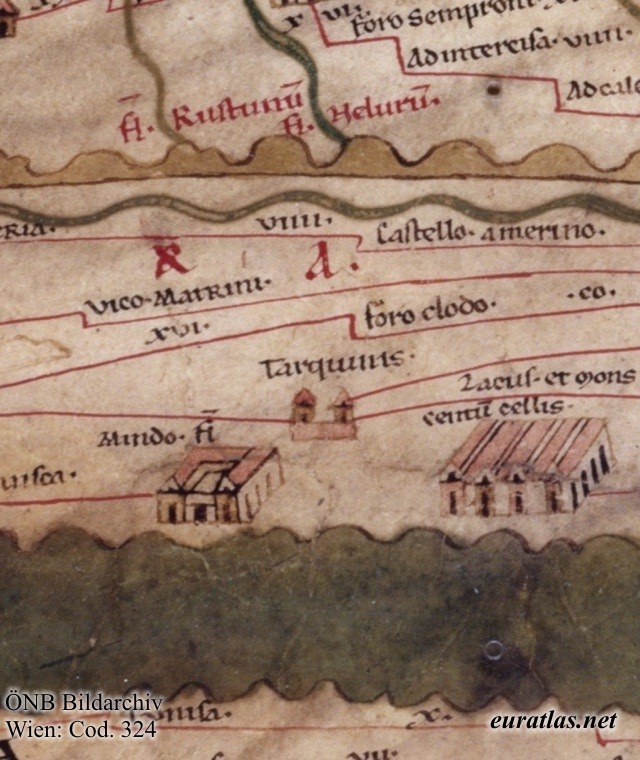 foro Sempron
Ad intercisa. viiii.
Ad cale
fl. Rustunū
fl. Helurū.
viiii.
Castello. amerino.
R A.
Vico. Matrini.
xvi.
foro clodo. .co.
Tarquinis.
Lacus. et Mons
Mindo. fl
centū cellis.
x.
vii.
ÖNB Bildarchiv
Wien: Cod. 324
euratlas.net